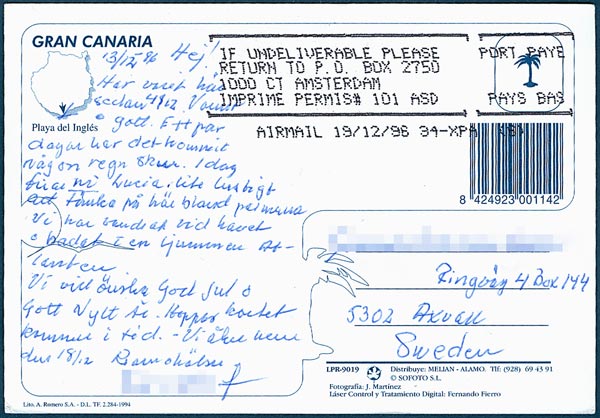 GRAN CANARIA
Playa del Inglés
13/12 96 Hej!
Har varit här
sedan 4/12. Varmt
o gott. Ett par
dagar har det kommit
någon regn skur. Idag
firar ni Lucia, lite lustigt
att tänka på här bland palmerna
Vi har vandrat vid havet
o badat i en ljummen At-
lanten
Vi vill önska God Jul o
Gott Nytt År. Hoppas kortet
kommer i tid. - Vi åker hem
den 18/12
IF UNDELIVERABLE PLEASE
RETURN TO P.O. BOX 2750
1000 CT AMSTERDAM
IMPRIME PERMIS# 101 ASD
PORT PAYE
PAYS BAS
AIRMAIL 19/12/96 34-XPA
8 424923 001142
Ringväg 4 Box 144
5302 Axvall
Sweden
LPR-9019
Distribuye: MELIAN - ALAMO. Tlf: (928) 69 43 91
© SOFOTO S.L.
Fotografía: J. Martínez
Láser Control y Tratamiento Digital: Fernando Fierro
Lito. A. Romero S.A. - D.L. TF. 2.284-1994